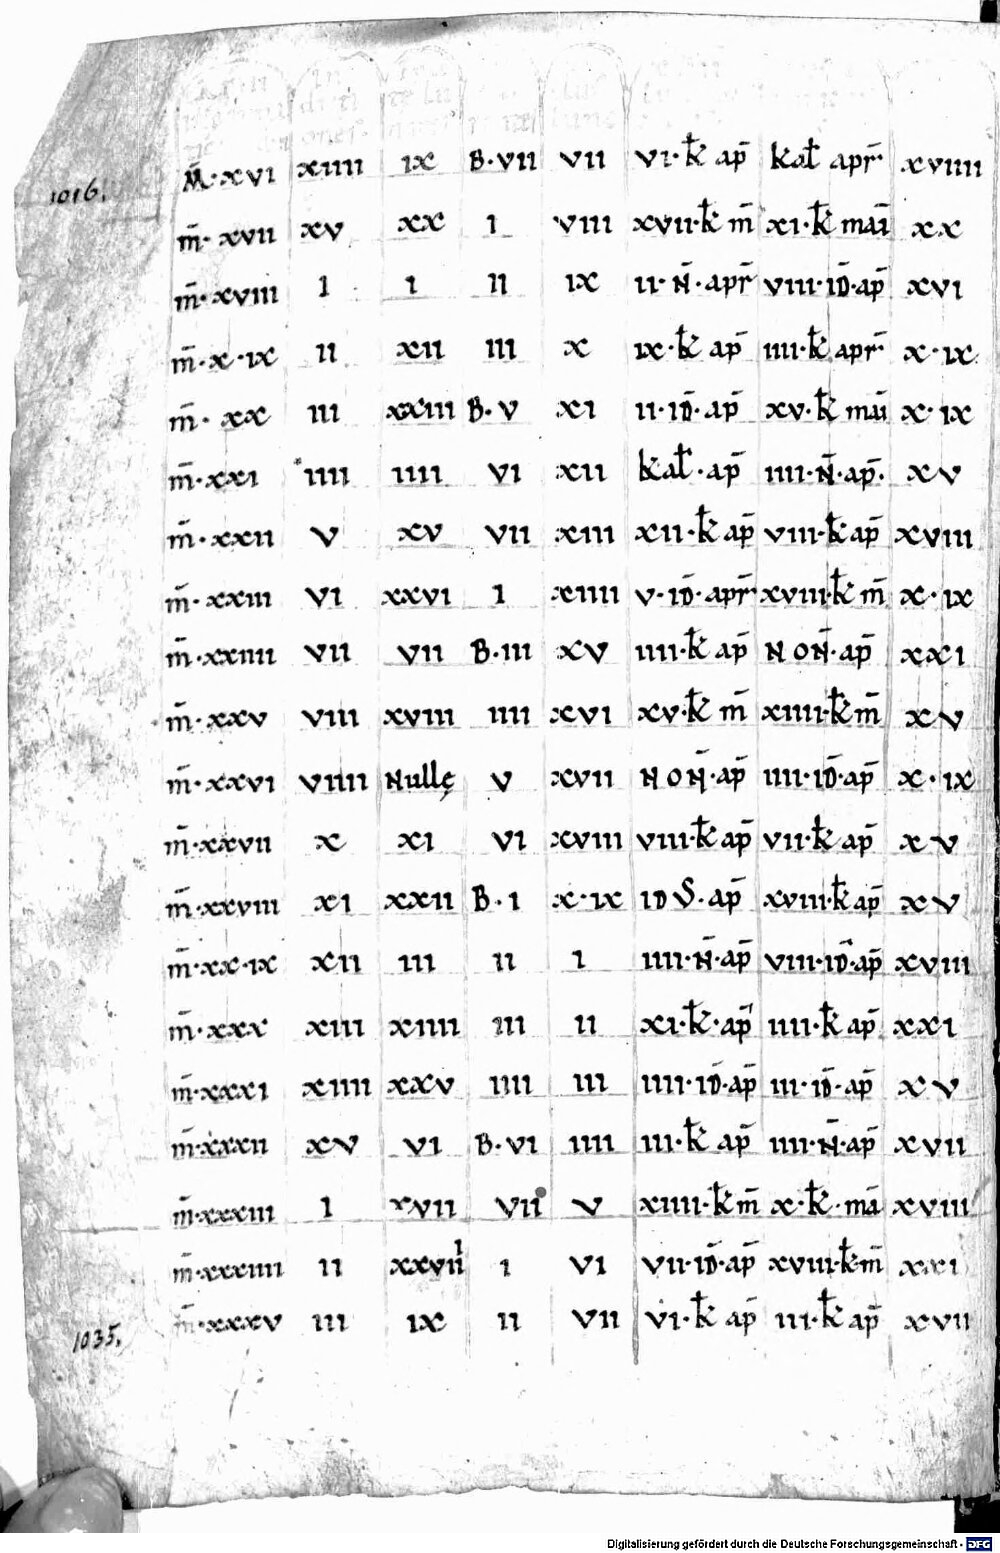 1016. M̄·xvi xiiii ix B·vii vii vi·k̄ ap̄ kal̄ apr̄ xviiii
m̄·xvii xv xx i viii xvii·k̄ m̄ xi·k̄ mai xx
m̄·xviii i i ii ix ii·N̄·apr̄ viii·iD̄·ap̄ xvi
m̄·x·ix ii xii iii x ix·k̄ ap̄ iiii·k̄ apr̄ x·ix
m̄·xx iii xxiii B·v xi ii·iD̄·ap̄ xv·k̄ mai x·ix
m̄·xxi iiii iiii vi xii kal̄·ap̄ iiii·N̄·ap̄· xv
m̄·xxii v xv vii xiii xii·k̄ ap̄ viii·k̄ ap̄ xviii
m̄·xxiii vi xxvi i xiiii v·iD̄·apr̄ xviii·k̄ m̄ x·ix
m̄·xxiiii vii vii B·iii xv iiii·k̄ ap̄ NON̄·ap̄ xxi
m̄·xxv viii xviii iiii xvi xv·k̄ m̄ xiiii·k̄ m̄ xv
m̄·xxvi viiii Nullę v xvii NON̄·ap̄ iiii·iD̄·ap̄ x·ix
m̄·xxvii x xi vi xviii viii·k̄ ap̄ vii·k̄ ap̄ xv
m̄·xxviii xi xxii B·i x·ix iDS·ap̄ xviii·k̄ ap̄ xv
m̄·xx·ix xii iii ii i iiii·N̄·ap̄ viii·iD̄·ap̄ xviii
m̄·xxx xiii xiiii iii ii xi·k̄·ap̄ iiii·k̄ ap̄ xxi
m̄·xxxi xiiii xxv iiii iii iiii·iD̄·ap̄ iii·iD̄·ap̄ xv
m̄·xxxii xv vi B·vi iiii iii·k̄ ap̄ iiii·N̄·ap̄ xvii
m̄·xxxiii i xvii vii v xiiii·k̄ m̄ x·k̄·mā xviii
m̄·xxxiiii ii xxviii i vi vii·iD̄·ap̄ xviii·k̄·m̄ xxi
1035. m̄·xxxv iii ix ii vii vi·k̄ ap̄ iii·k̄ ap̄ xvii
Digitalisierung gefördert durch die Deutsche Forschungsgemeinschaft - DFG